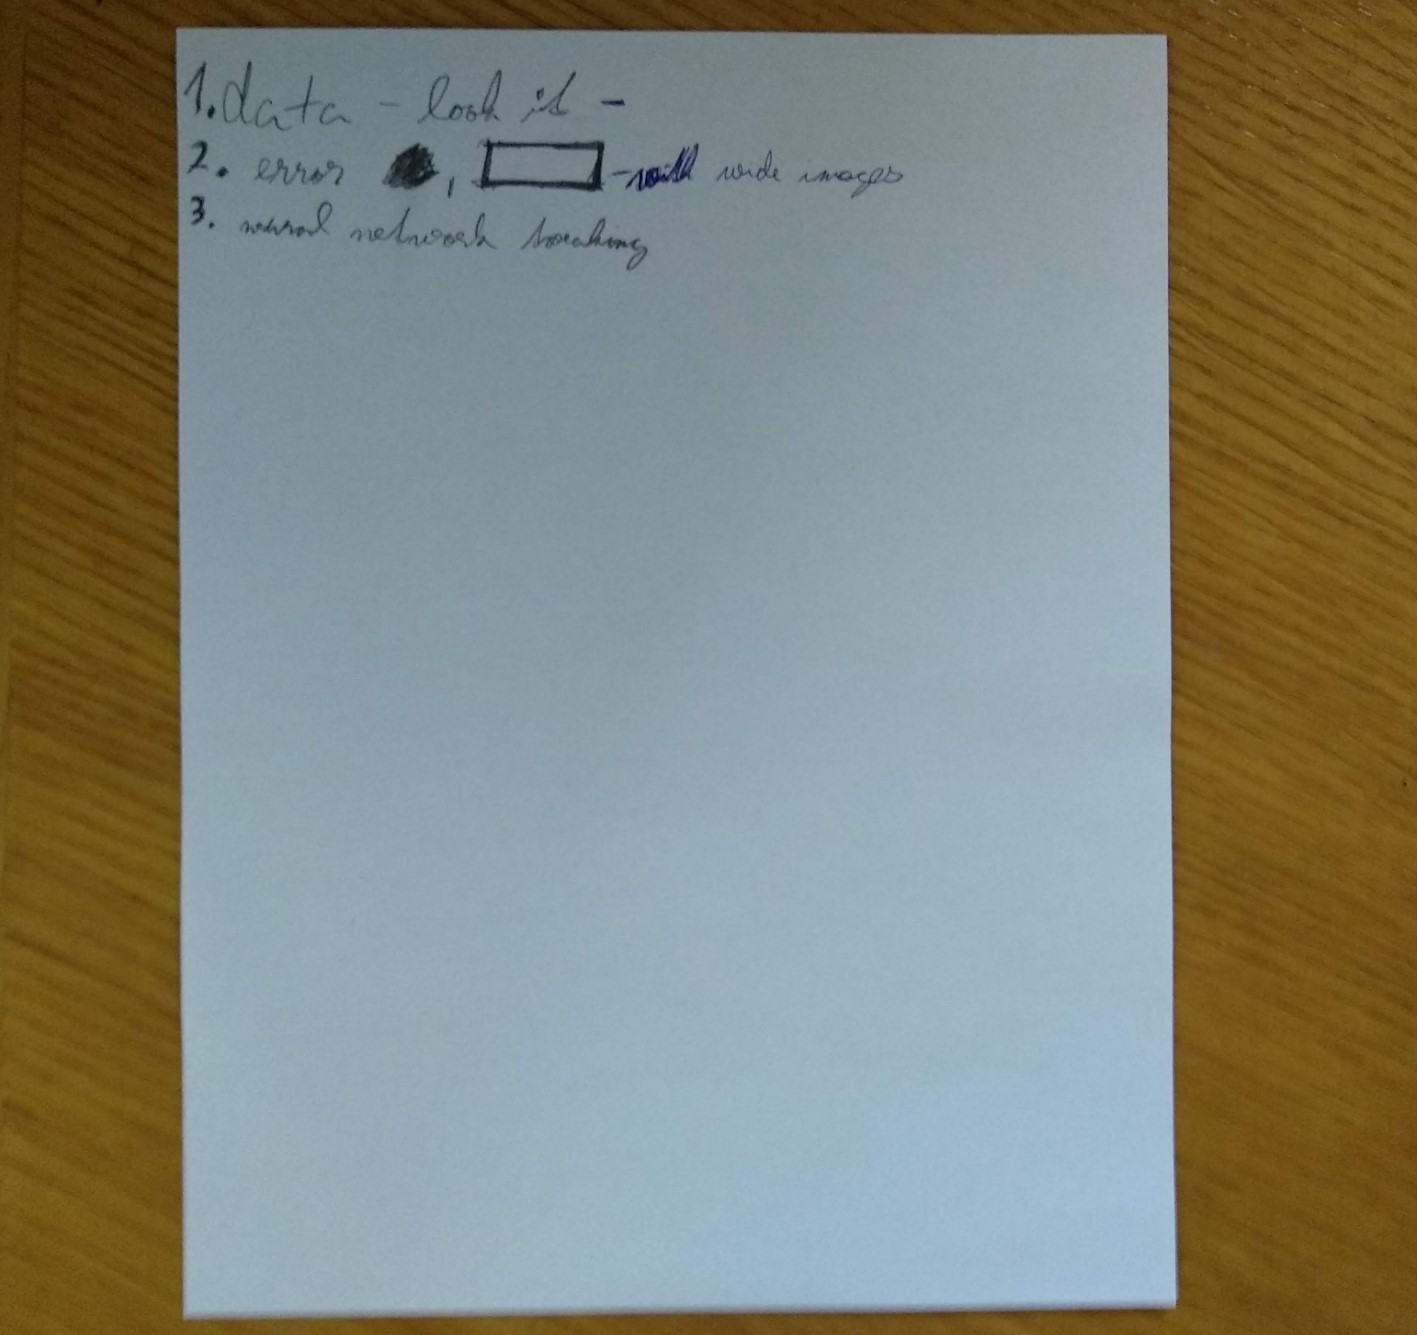 1. data - look it -
2. error , - with wide images
3. neural network speaking